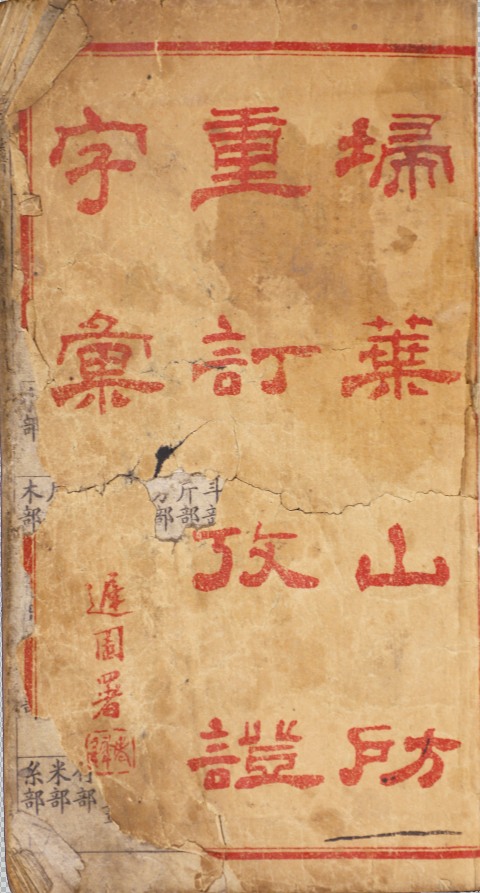 掃葉山房
重訂攷證
字彙
遯園署
斗部
斤部
方部
木部
竹部
米部
糸部